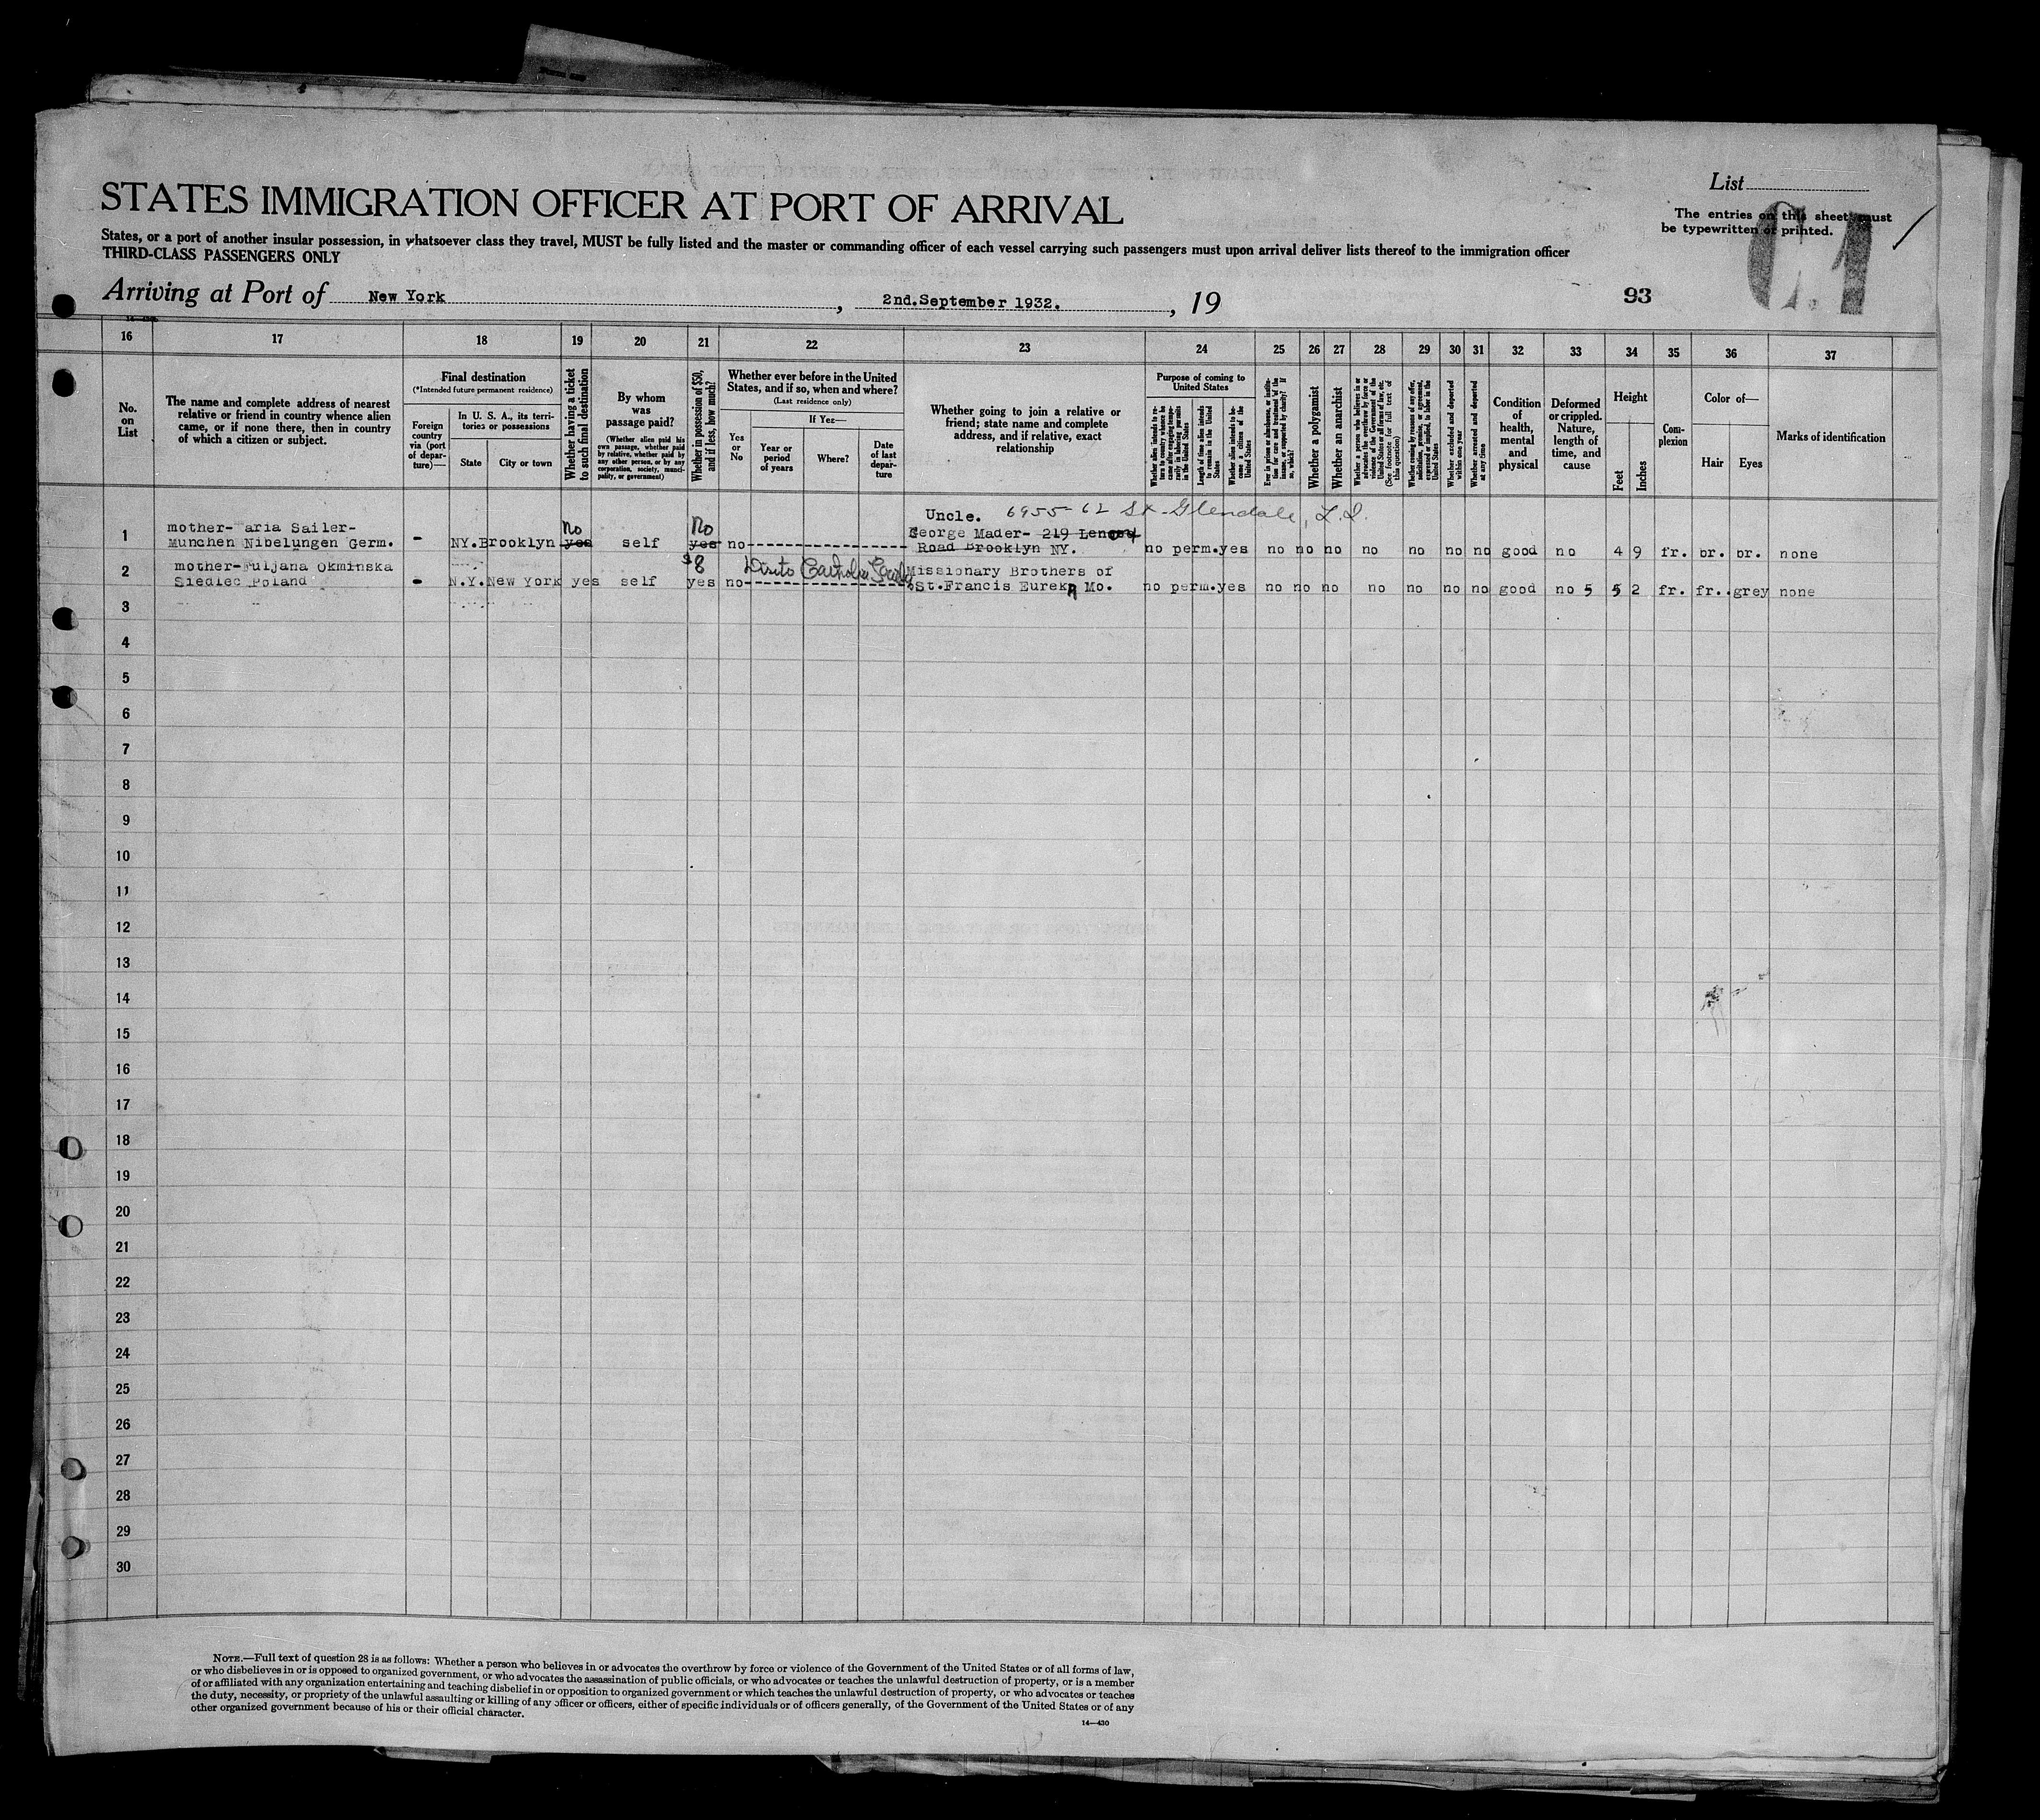 STATES IMMIGRATION OFFICER AT PORT OF ARRIVAL
List
The entries on this sheet must
be typewritten or printed.
C.1
States, or a port of another insular possession, in whatsoever class they travel, MUST be fully listed and the master or commanding officer of each vessel carrying such passengers must upon arrival deliver lists thereof to the immigration officer
THIRD-CLASS PASSENGERS ONLY
Arriving at Port of New York, 2nd.September 1932., 19
93
16 17 18 19 20 21 22 23 24 25 26 27 28 29 30 31 32 33 34 35 36 37
No. on List
The name and complete address of nearest
relative or friend in country whence alien
came, or if none there, then in country
of which a citizen or subject.
Final destination
(*Intended future permanent residence)
Foreign
country
via (port
of depar-
ture)—
In U. S. A., its terri-
tories or possessions
State
City or town
Whether having a ticket
to such final destination
By whom
was
passage paid?
(Whether alien paid his
own passage, whether paid
by relative, whether paid by
any other person, or by any
corporation, society, munici-
pality, or government)
Whether in possession of $50,
and if less, how much?
Whether ever before in the United
States, and if so, when and where?
(Last residence only)
Yes
or
No
If Yes—
Year or
period
of years
Where?
Date
of last
depar-
ture
Whether going to join a relative or
friend; state name and complete
address, and if relative, exact
relationship
Purpose of coming to
United States
Whether alien intends to re-
turn to country whence he
came after engaging tempo-
rarily in laboring pursuits
in the United States
Length of time alien intends
to remain in the United
States
Whether alien intends to be-
come a citizen of the
United States
Ever in prison or almshouse, or institu-
tion for care and treatment of the
insane, or supported by charity? If
so, which?
Whether a polygamist
Whether an anarchist
Whether a person who believes in or
advocates the overthrow by force or
violence of the Government of the
United States or all forms of law, etc.
(See footnote for full text of
this question)
Whether coming by reason of any offer,
solicitation, promise, or agreement,
expressed or implied, to labor in the
United States
Whether excluded and deported
within one year
Whether arrested and deported
at any time
Condition
of
health,
mental
and
physical
Deformed
or crippled.
Nature,
length of
time, and
cause
Height
Feet
Inches
Com-
plexion
Color of—
Hair
Eyes
Marks of identification
Uncle. 6955-62 St. Glendale, L.I.
1 mother- aria Sailer-
Munchen Nibelungen Germ. - NY. Brooklyn yes No self yes No no
George Mader- 219
Road Brooklyn NY. no perm. yes no no no no no no no good no 4 9 fr. br. br. none
2 mother- uljana Okminska
Siedlec Poland - N.Y. New York yes self $8 yes no
Missionary Brothers of
St.Francis Eureka Mo. no perm. yes no no no no no no no good no 5 5 2 fr. fr. grey none
3
4
5
6
7
8
9
10
11
12
13
14
15
16
17
18
19
20
21
22
23
24
25
26
27
28
29
30
NOTE.—Full text of question 28 is as follows: Whether a person who believes in or advocates the overthrow by force or violence of the Government of the United States or of all forms of law,
or who disbelieves in or is opposed to organized government, or who advocates the assassination of public officials, or who advocates or teaches the unlawful destruction of property, or is a member
of or affiliated with any organization entertaining and teaching disbelief in or opposition to organized government or which teaches the unlawful destruction of property, or who advocates or teaches
the duty, necessity, or propriety of the unlawful assaulting or killing of any officer or officers, either of specific individuals or of officers generally, of the Government of the United States or of any
other organized government because of his or their official character.
14—430